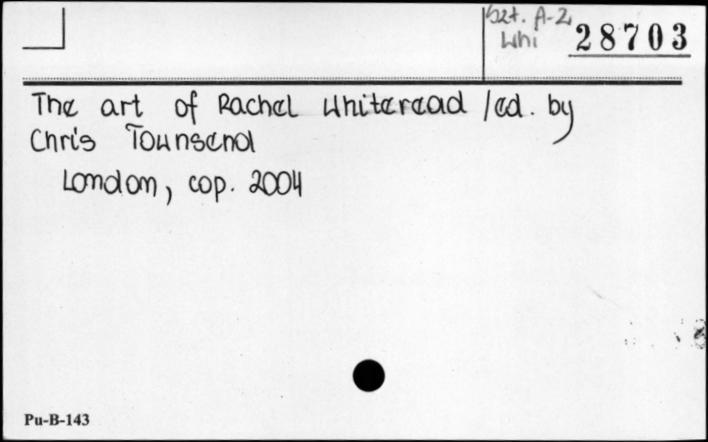 Szt. A-Z
Whi
28703
The art of Rachel Whiteread / ed. by
Chris Townsend
London, cop. 2004
Pu-B-143